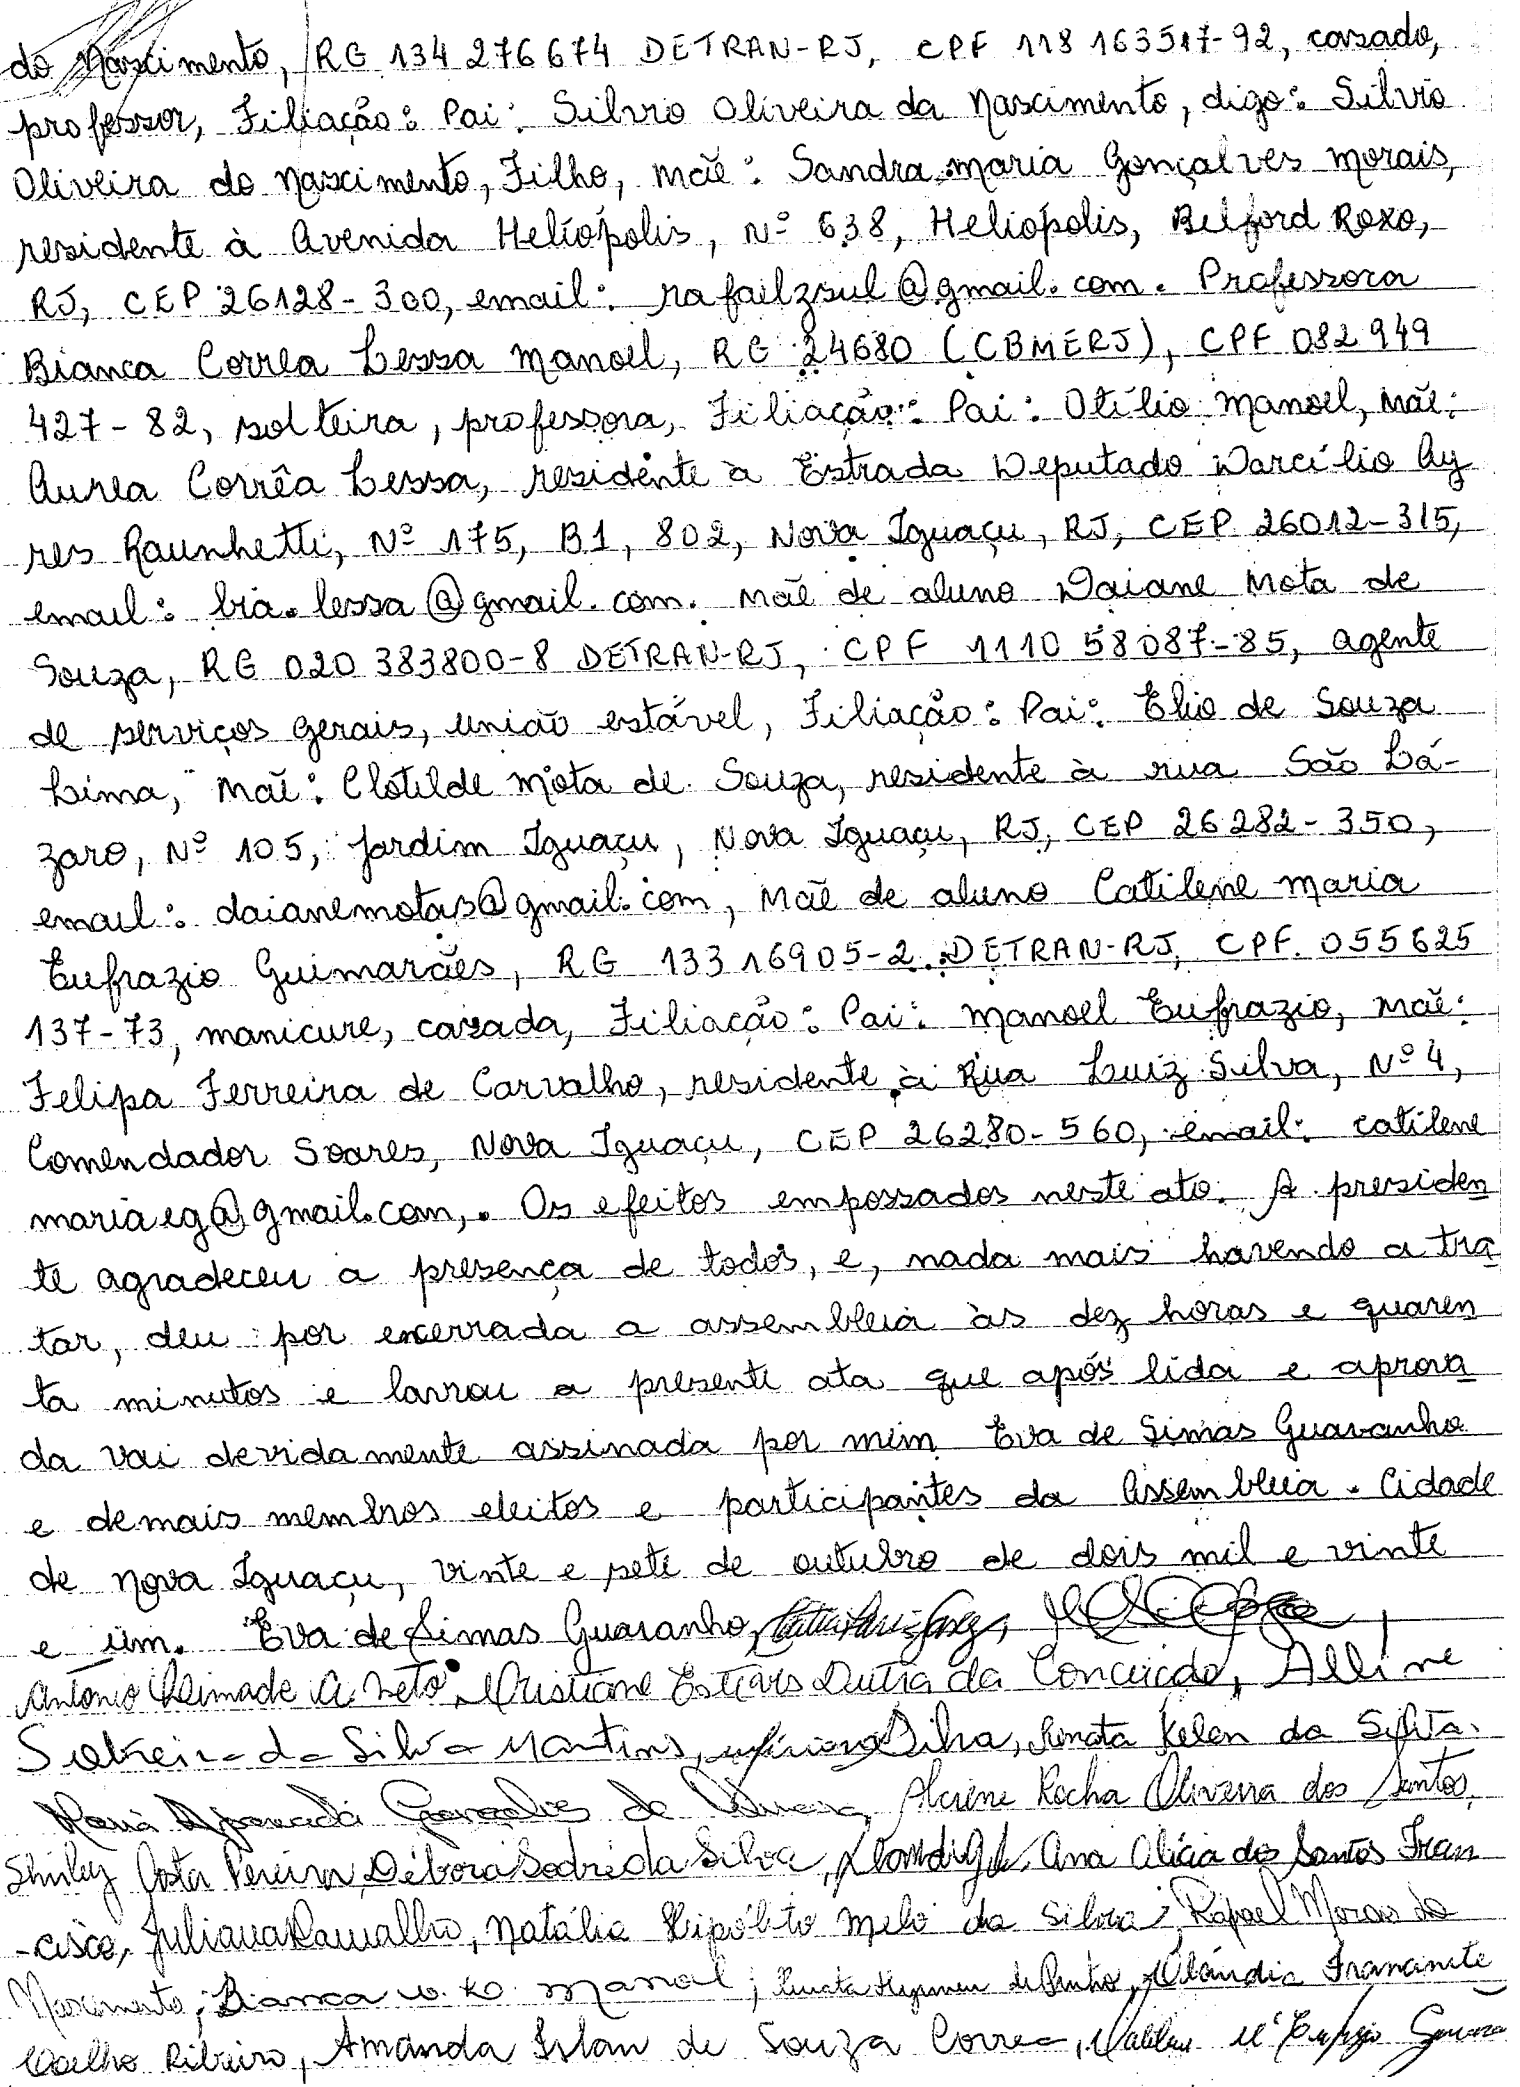 do Nascimento, RG 134 276674 DETRAN-RJ, CPF 118 163517-92, casado,
professor, Filiação: Pai: Silvio Oliveira da Nascimento, digo: Silvio
Oliveira do Nascimento, Filho, Mãe: Sandra Maria Gonçalves Morais,
residente à Avenida Heliópolis, Nº 638, Heliópolis, Belford Roxo,
RJ, CEP 26128-300, email: rafailzsul@gmail.com. Professora
Bianca Correa Lessa Manoel, RG 24680 (CBMERJ), CPF 082 949
427-82, solteira, professora, Filiação: Pai: Otílio Manoel, Mãe:
Aurea Corrêa Lessa, residente à Estrada Deputado Darcílio Ay
res Raunhetti, Nº 175, B1, 802, Nova Iguaçu, RJ, CEP 26012-315,
email: bia.lessa@gmail.com. Mãe de aluno Daiane Mota de
Souza, RG 020 383800-8 DETRAN-RJ, CPF 1110 58087-85, agente
de serviços gerais, união estável, Filiação: Pai: Elio de Souza
Lima, Mãe: Clotilde Mota de Souza, residente à rua São Lá-
zaro, Nº 105, Jardim Iguaçu, Nova Iguaçu, RJ, CEP 26282-350,
email: daianemotas@gmail.com, Mãe de aluno Catilene Maria
Eufrazio Guimarães, RG 133 16905-2 DETRAN-RJ, CPF. 055625
137-73, manicure, casada, Filiação: Pai: Manoel Eufrazio, Mãe:
Felipa Ferreira de Carvalho, residente à Rua Luiz Silva, Nº 4,
Comendador Soares, Nova Iguaçu, CEP 26280-560, email: catilene
mariaeg@gmail.com,. Os efeitos empossados neste ato. A presiden
te agradeceu a presença de todos, e, nada mais havendo a tra
tar, deu por encerrada a assembleia às dez horas e quaren
ta minutos e lavrou a presente ata que após lida e aprova
da vai devidamente assinada por mim Eva de Simas Guaranho
e demais membros eleitos e participantes da Assembleia. Cidade
de Nova Iguaçu, vinte e sete de outubro de dois mil e vinte
e um. Eva de Simas Guaranho,
Antonio A. Neto, Cristiane Esteves Dutra da Conceição, Alline
Silveira da Silva Martins, Silva, Renata Kelen da Silva.
Maria Aparecida Gonçalves de Alcione Rocha Oliveira dos Santos,
Shirley Costa Pereira, Débora Sodré da Silva, Ana Alícia dos Santos Fran
-cisco, Juliana Carvalho, Natália Hipólito Melo da Silva; Rafael Morais do
Nascimento; Bianca C. L. Manoel; Renata de Pinho, Claudia Francinete
Coelho Ribeiro, Amanda Islan de Souza Correa, Catilene Mª Eufrazio